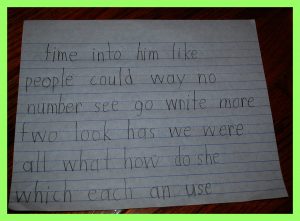 time into him like
people could way no
number see go write more
two look has we were
all what how do she
which each an use